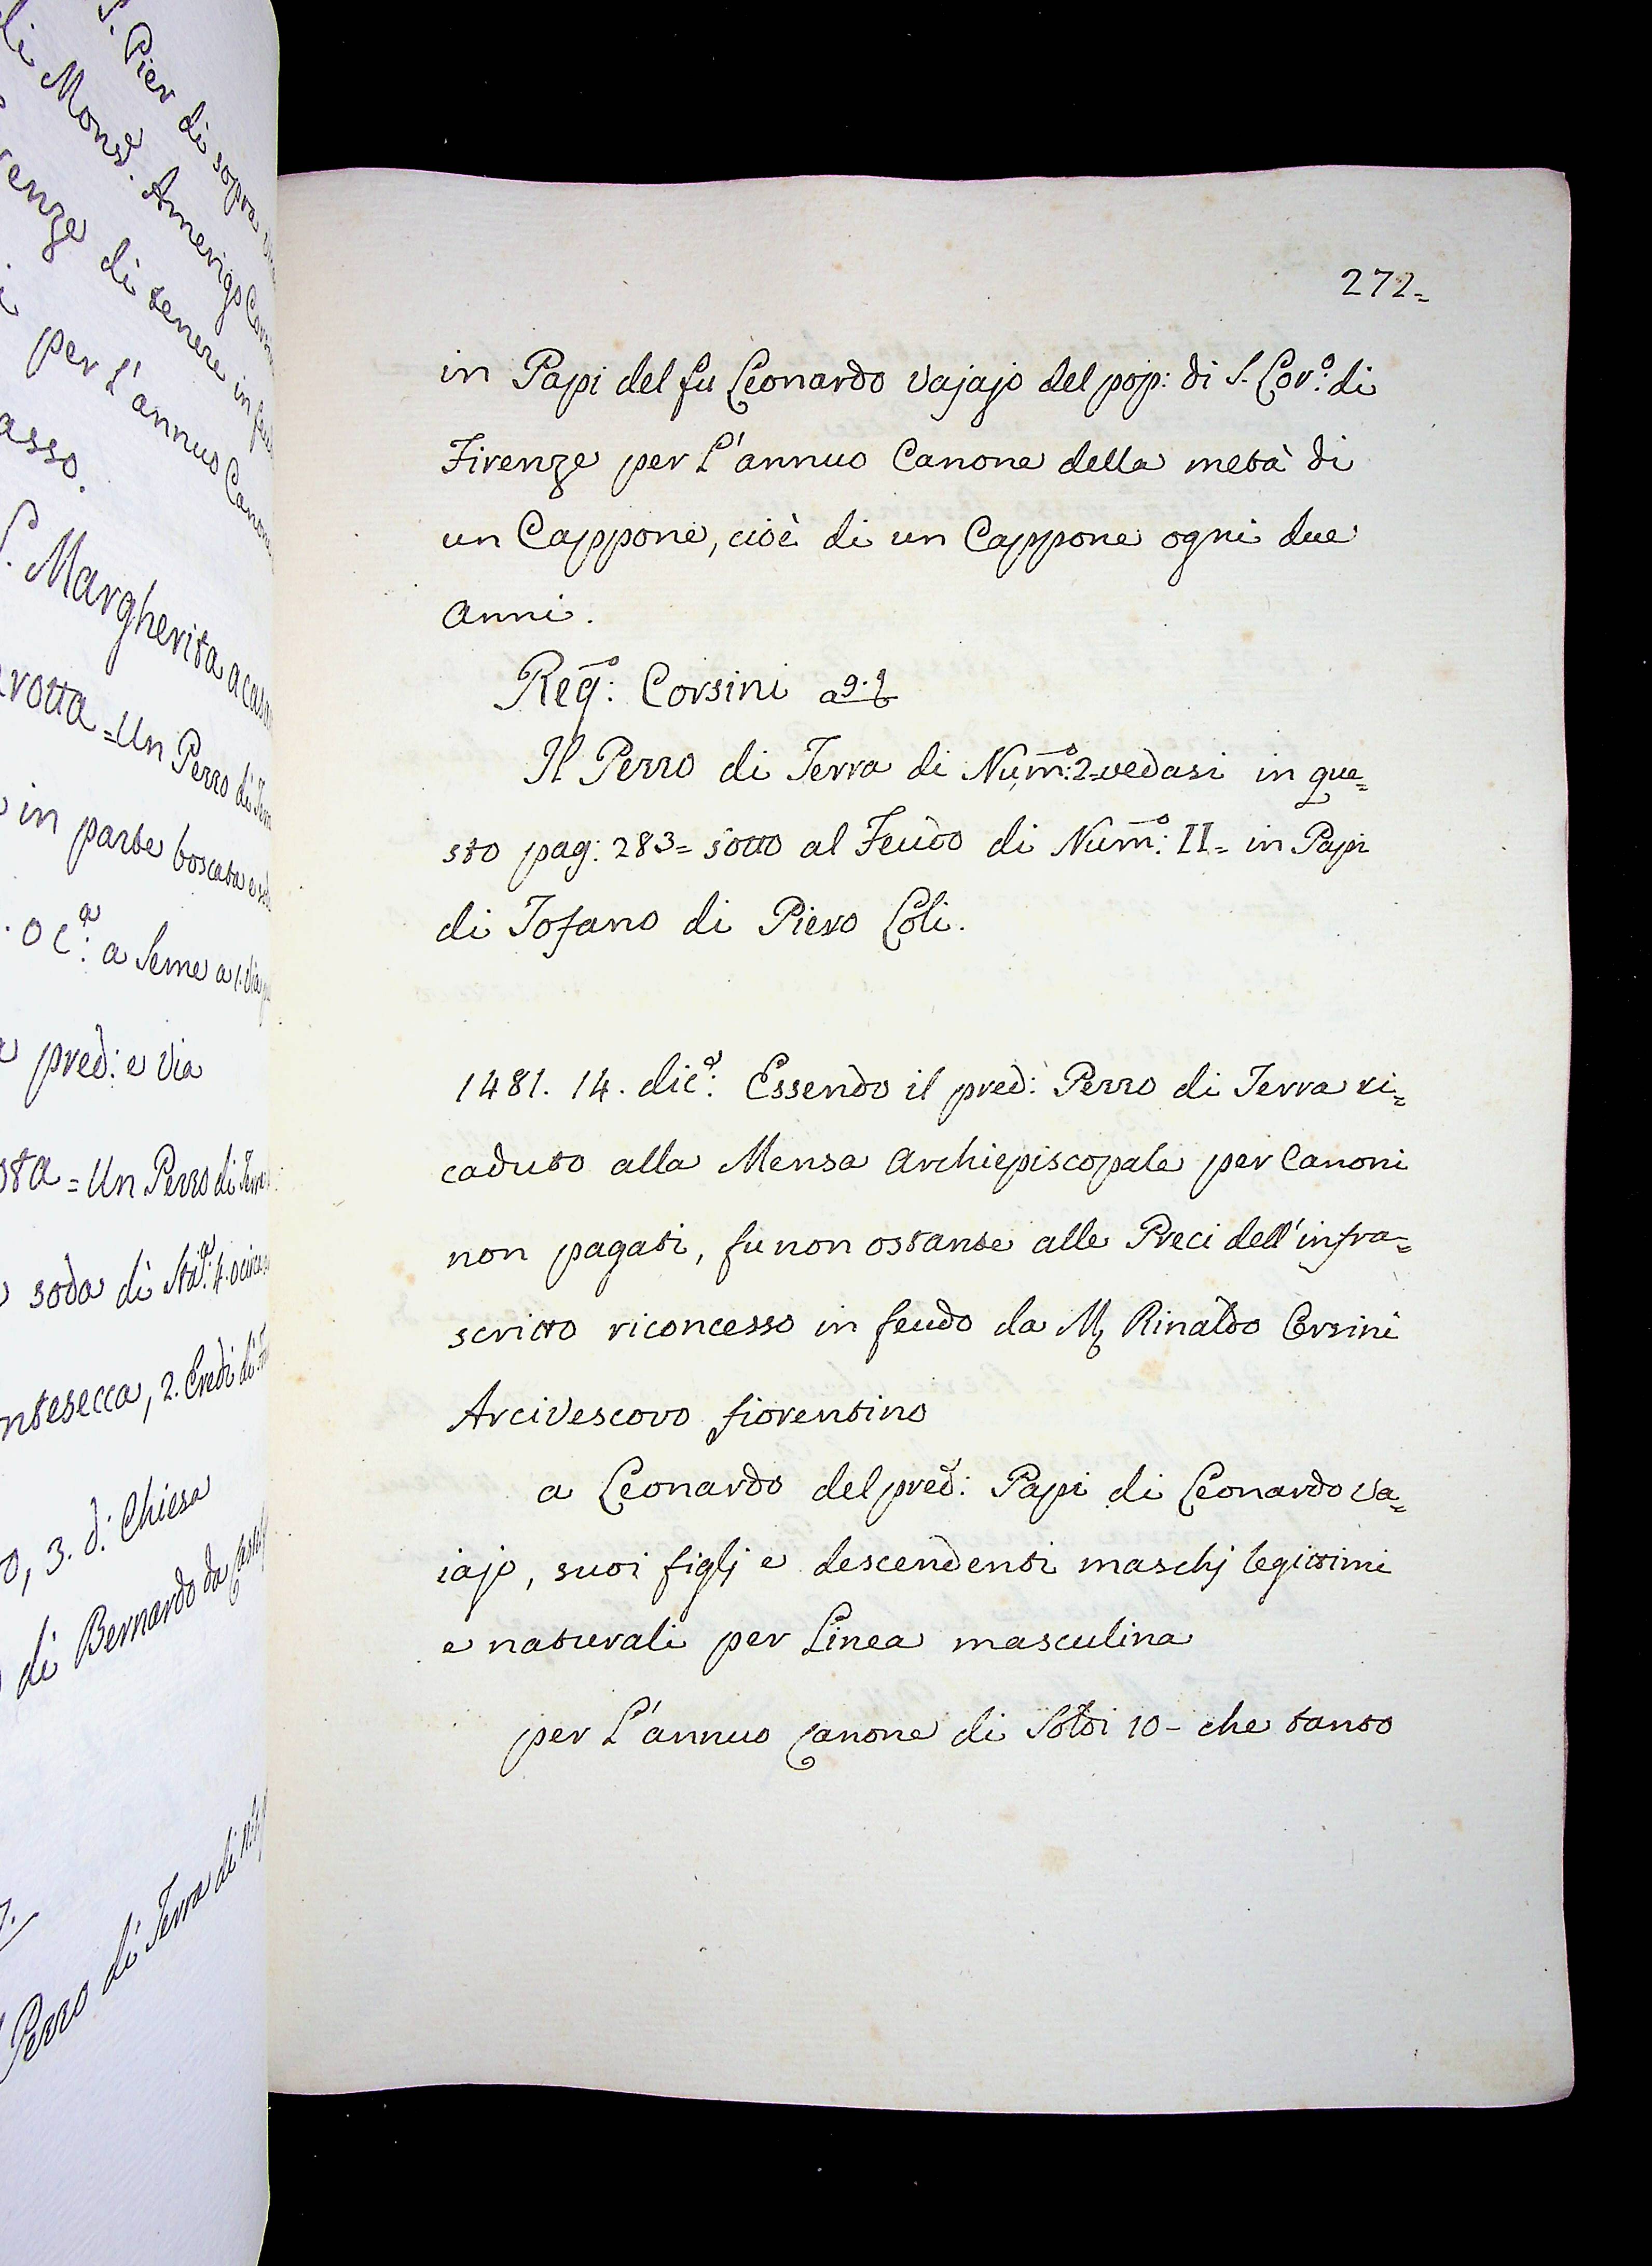 S. Pier di sopra
di Mons.e Amerigo
renze di tenere in
i per l'annuo Canone
asso.
S. Margherita a casa
rotta = Un Pezzo di
in parte boscata e
. 0 c.a a seme a 1. Via
a pred: e Via
osta = Un Pezzo di
soda di Sta.a 4. 0 circa
ntesecca, 2. Eredi di
o, 3. d.a Chiesa
di Bernardo da
Pezzo di Terra di
272=
in Papi del fu Leonardo Vajajo del pop: di S. Lor.o di
Firenze per L'annuo Canone della metà di
un Cappone, cioè di un Cappone ogni due
anni.
Reg.o: Corsini a 9. t
Il Pezzo di Terra di Num.o: 2= vedasi in que=
sto pag: 283= sotto al Feudo di Num.o: II= in Papi
di Tofano di Piero Coli.
1481. 14. dic.e: Essendo il pred: Pezzo di Terra ri=
caduto alla Mensa Archiepiscopale per Canoni
non pagati, fu non ostante alle Preci dell'infra=
scritto riconcesso in feudo da M. Rinaldo Orsini
Arcivescovo fiorentino
a Leonardo del pred.o: Papi di Leonardo Va=
iajo, suoi figlj e descendenti maschj legittimi
e naturali per Linea masculina
per L'annuo Canone di Soldi 10- che tanto